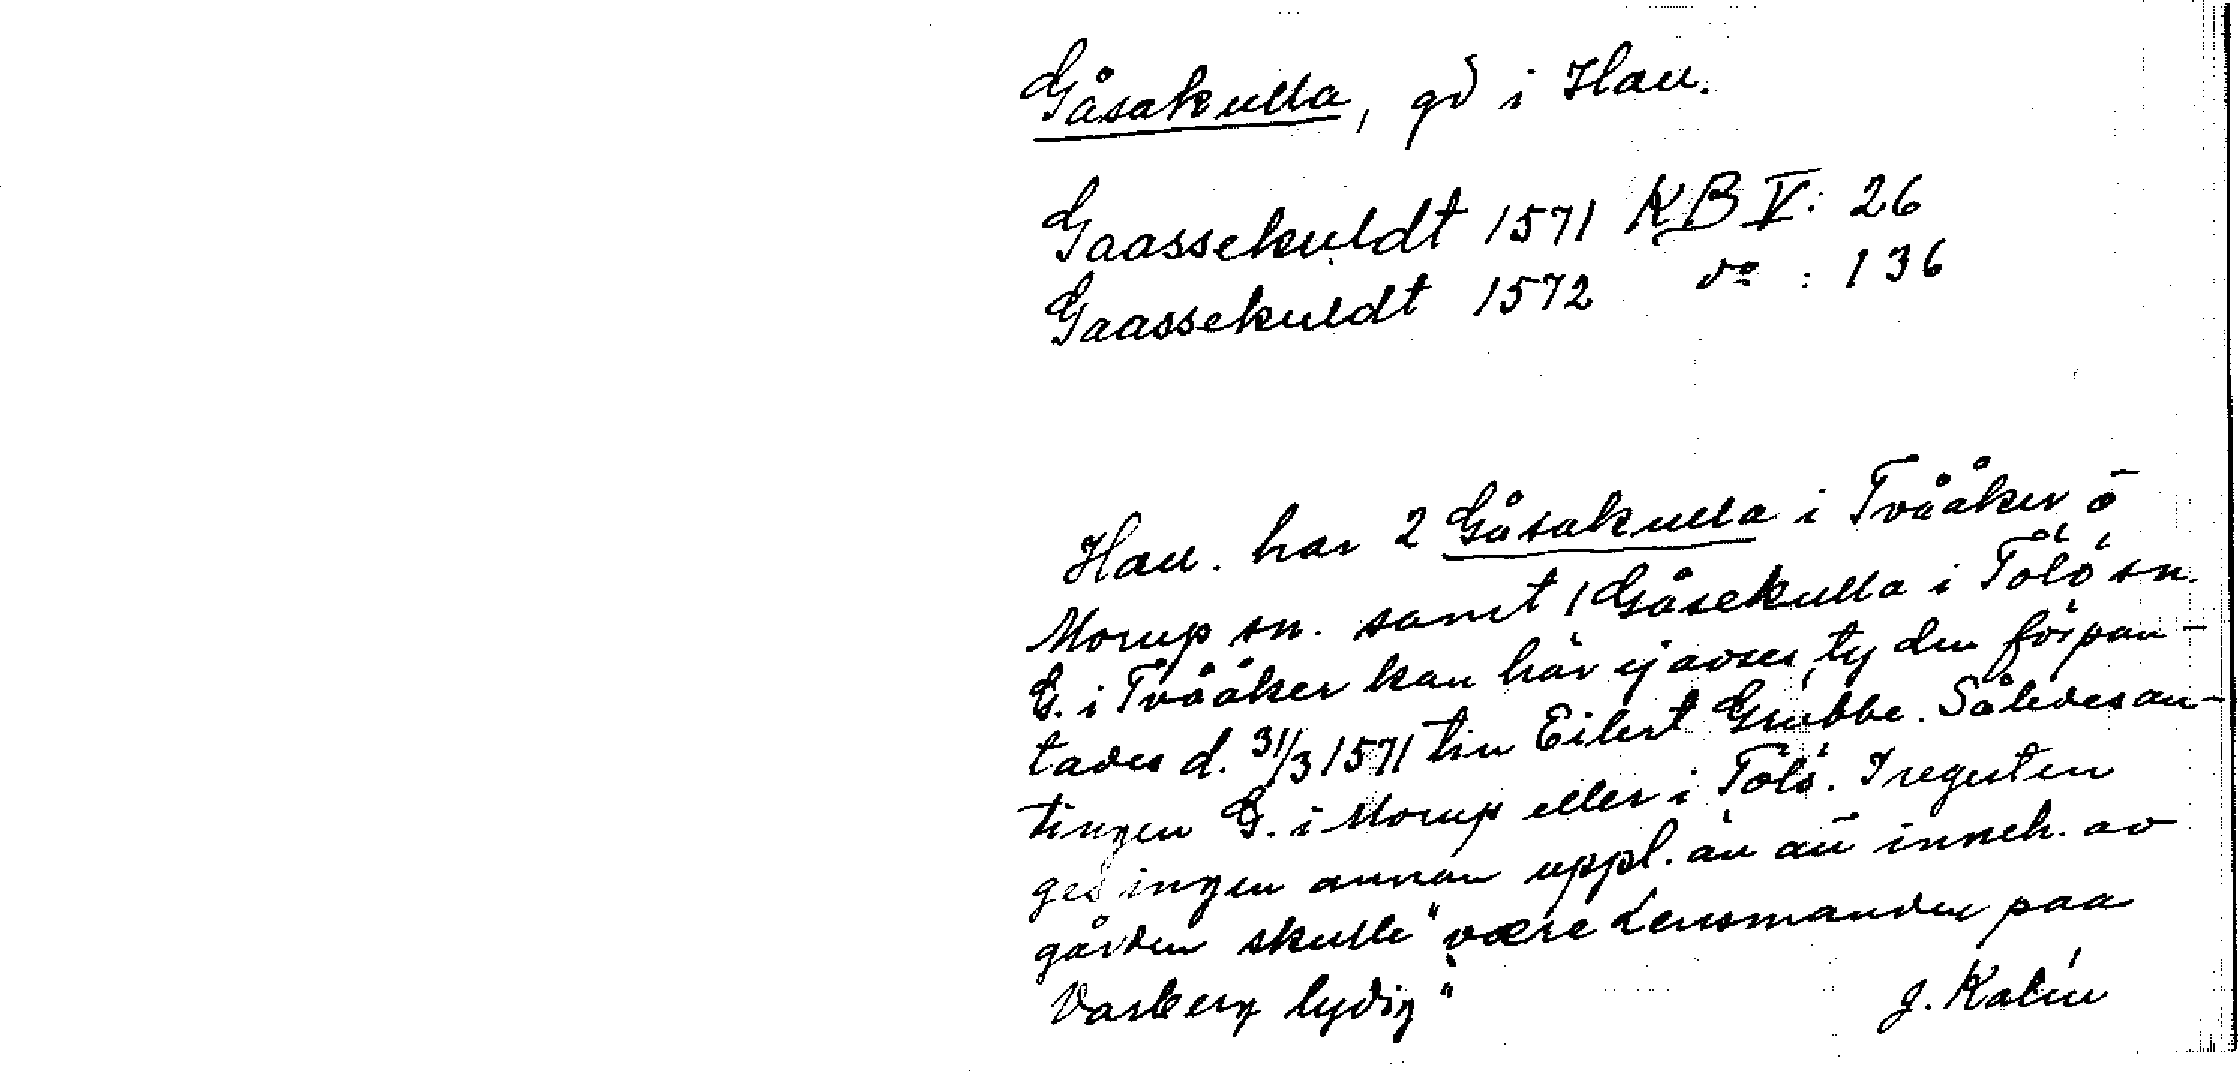 Gåsakulla, gd i Hall.
Gaassekuldt 1571 KB V: 26
Gaassekuldt 1572 do : 136
Hall. har 2 Gåsakulla i Tvååker o
Morup sn. samt 1 Gåsekulla i Tölö sn.
G. i Tvååker kan här ej avses, ty den förpan-
tades d. 31/3 1571 till Eilert Grubbe. Således an-
tingen G. i Morup eller i Tölö. I regesten
ges ingen annan uppl. än att inneh. av
gården skulle "være Lensmanden paa
Varberg lydig"
J. Kalén